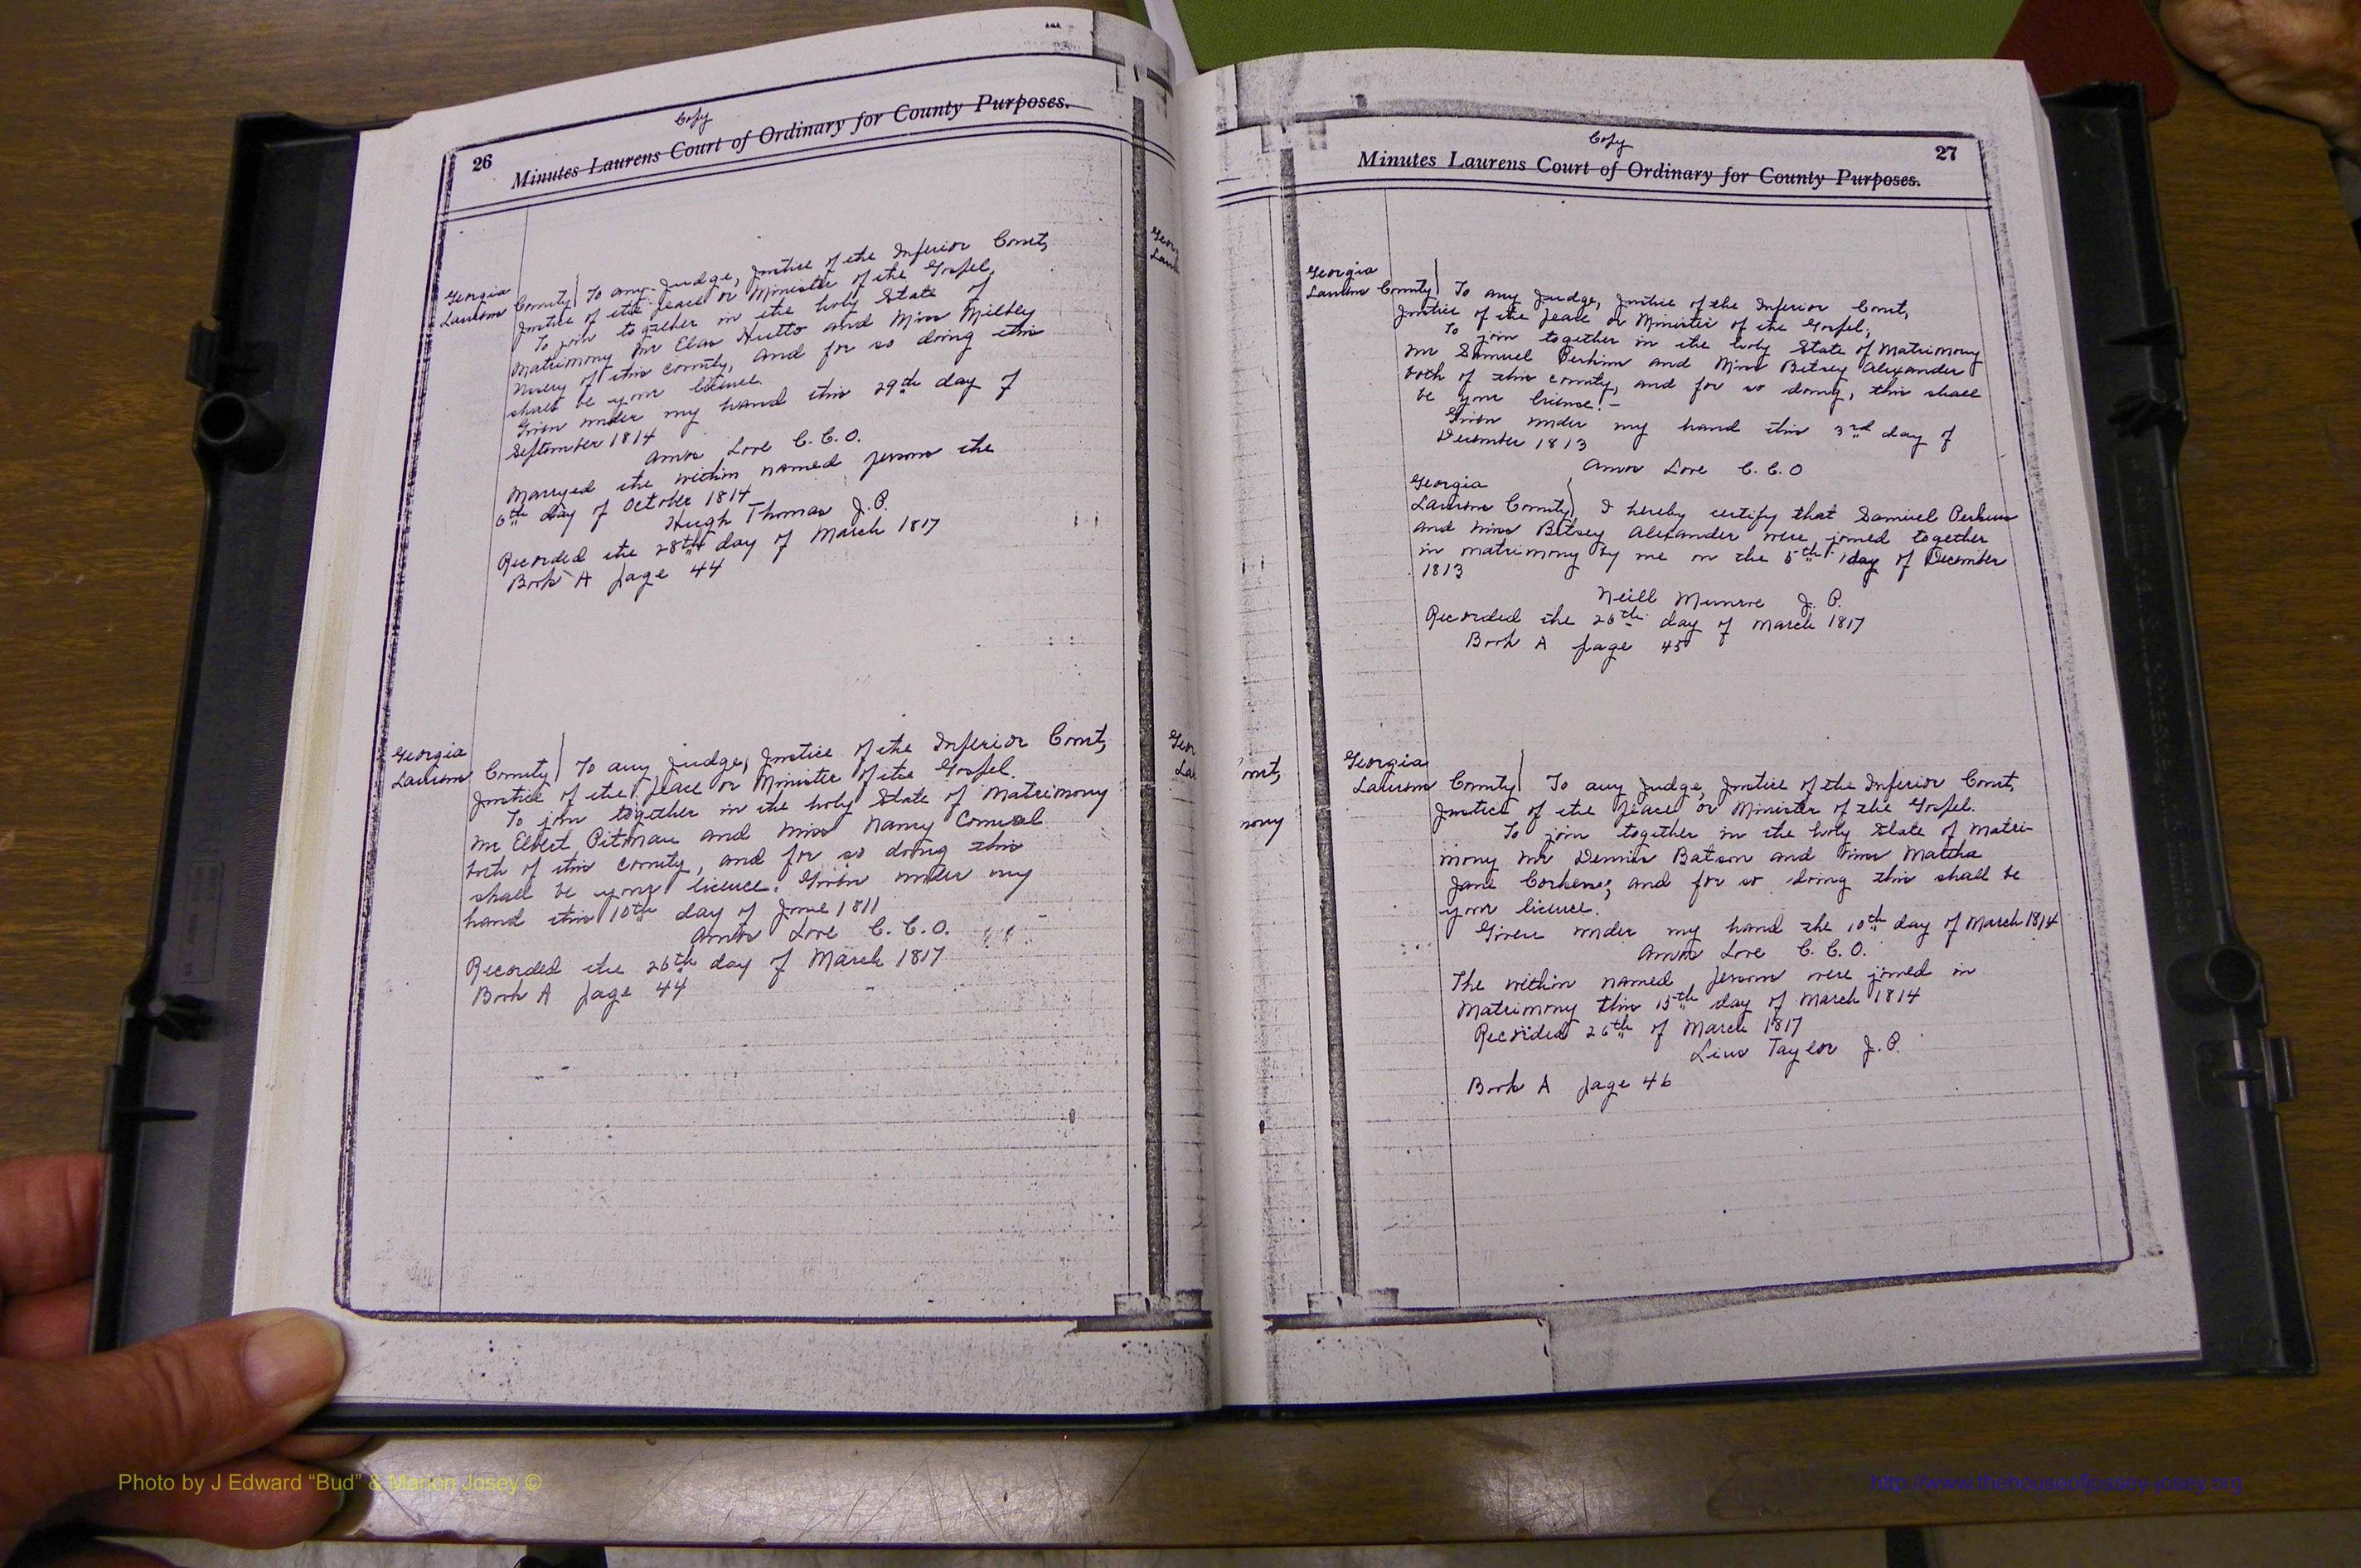 Copy
26
Minutes Laurens Court of Ordinary for County Purposes.
Georgia
Laurens County To any Judge, Justice of the Inferior Court,
Justice of the Peace or Minister of the Gospel,
To join together in the holy State of
Matrimony Mr Elas Hutto and Miss Milbey
of this county, and for so doing this
shall be your licence.
Given under my hand this 29th day of
September 1814
Amos Love C. C. O.
Marryed the within named persons the
6th day of October 1814
Hugh Thomas J. P.
Recorded the 28th day of March 1817
Book A page 44
Georgia
Laurens County To any Judge, Justice of the Inferior Court,
Justice of the Peace or Minister of the Gospel.
To join together in the holy State of Matrimony
Mr Elbert Pitman and Miss Nancy
both of this county, and for so doing this
shall be your licence. Given under my
hand this 10th day of June 1811
Amos Love C. C. O.
Recorded the 26th day of March 1817
Book A page 44
Copy
27
Minutes Laurens Court of Ordinary for County Purposes.
Georgia
Laurens County To any Judge, Justice of the Inferior Court,
Justice of the Peace or Minister of the Gospel,
To join together in the holy State of Matrimony
Mr Samuel Perkins and Miss Betsey Alexander
both of this county, and for so doing, this shall
be your licence.-
Given under my hand this 3rd day of
December 1813
Amos Love C. C. O
Georgia
Laurens County, I hereby certify that Samuel Perkins
and Miss Betsey Alexander were joined together
in matrimony by me on the 5th day of December
1813
Neill Munroe J. P.
Recorded the 26th day of March 1817
Book A page 45
Georgia
Laurens County To any Judge, Justice of the Inferior Court,
Justice of the Peace or Minister of the Gospel.
To join together in the holy State of Matri-
mony Mr Dennis Batson and Miss Matcha
Jane and for so doing this shall be
your licence.
Given under my hand the 10th day of March 1814
Amos Love C. C. O.
The within named persons were joined in
Matrimony this 15th day of March 1814
Recorded 26th of March 1817
Linus Taylor J. P.
Book A page 46
Photo by J Edward “Bud” & Marion Josey ©
http://www.thehouseofjossey-josey.org